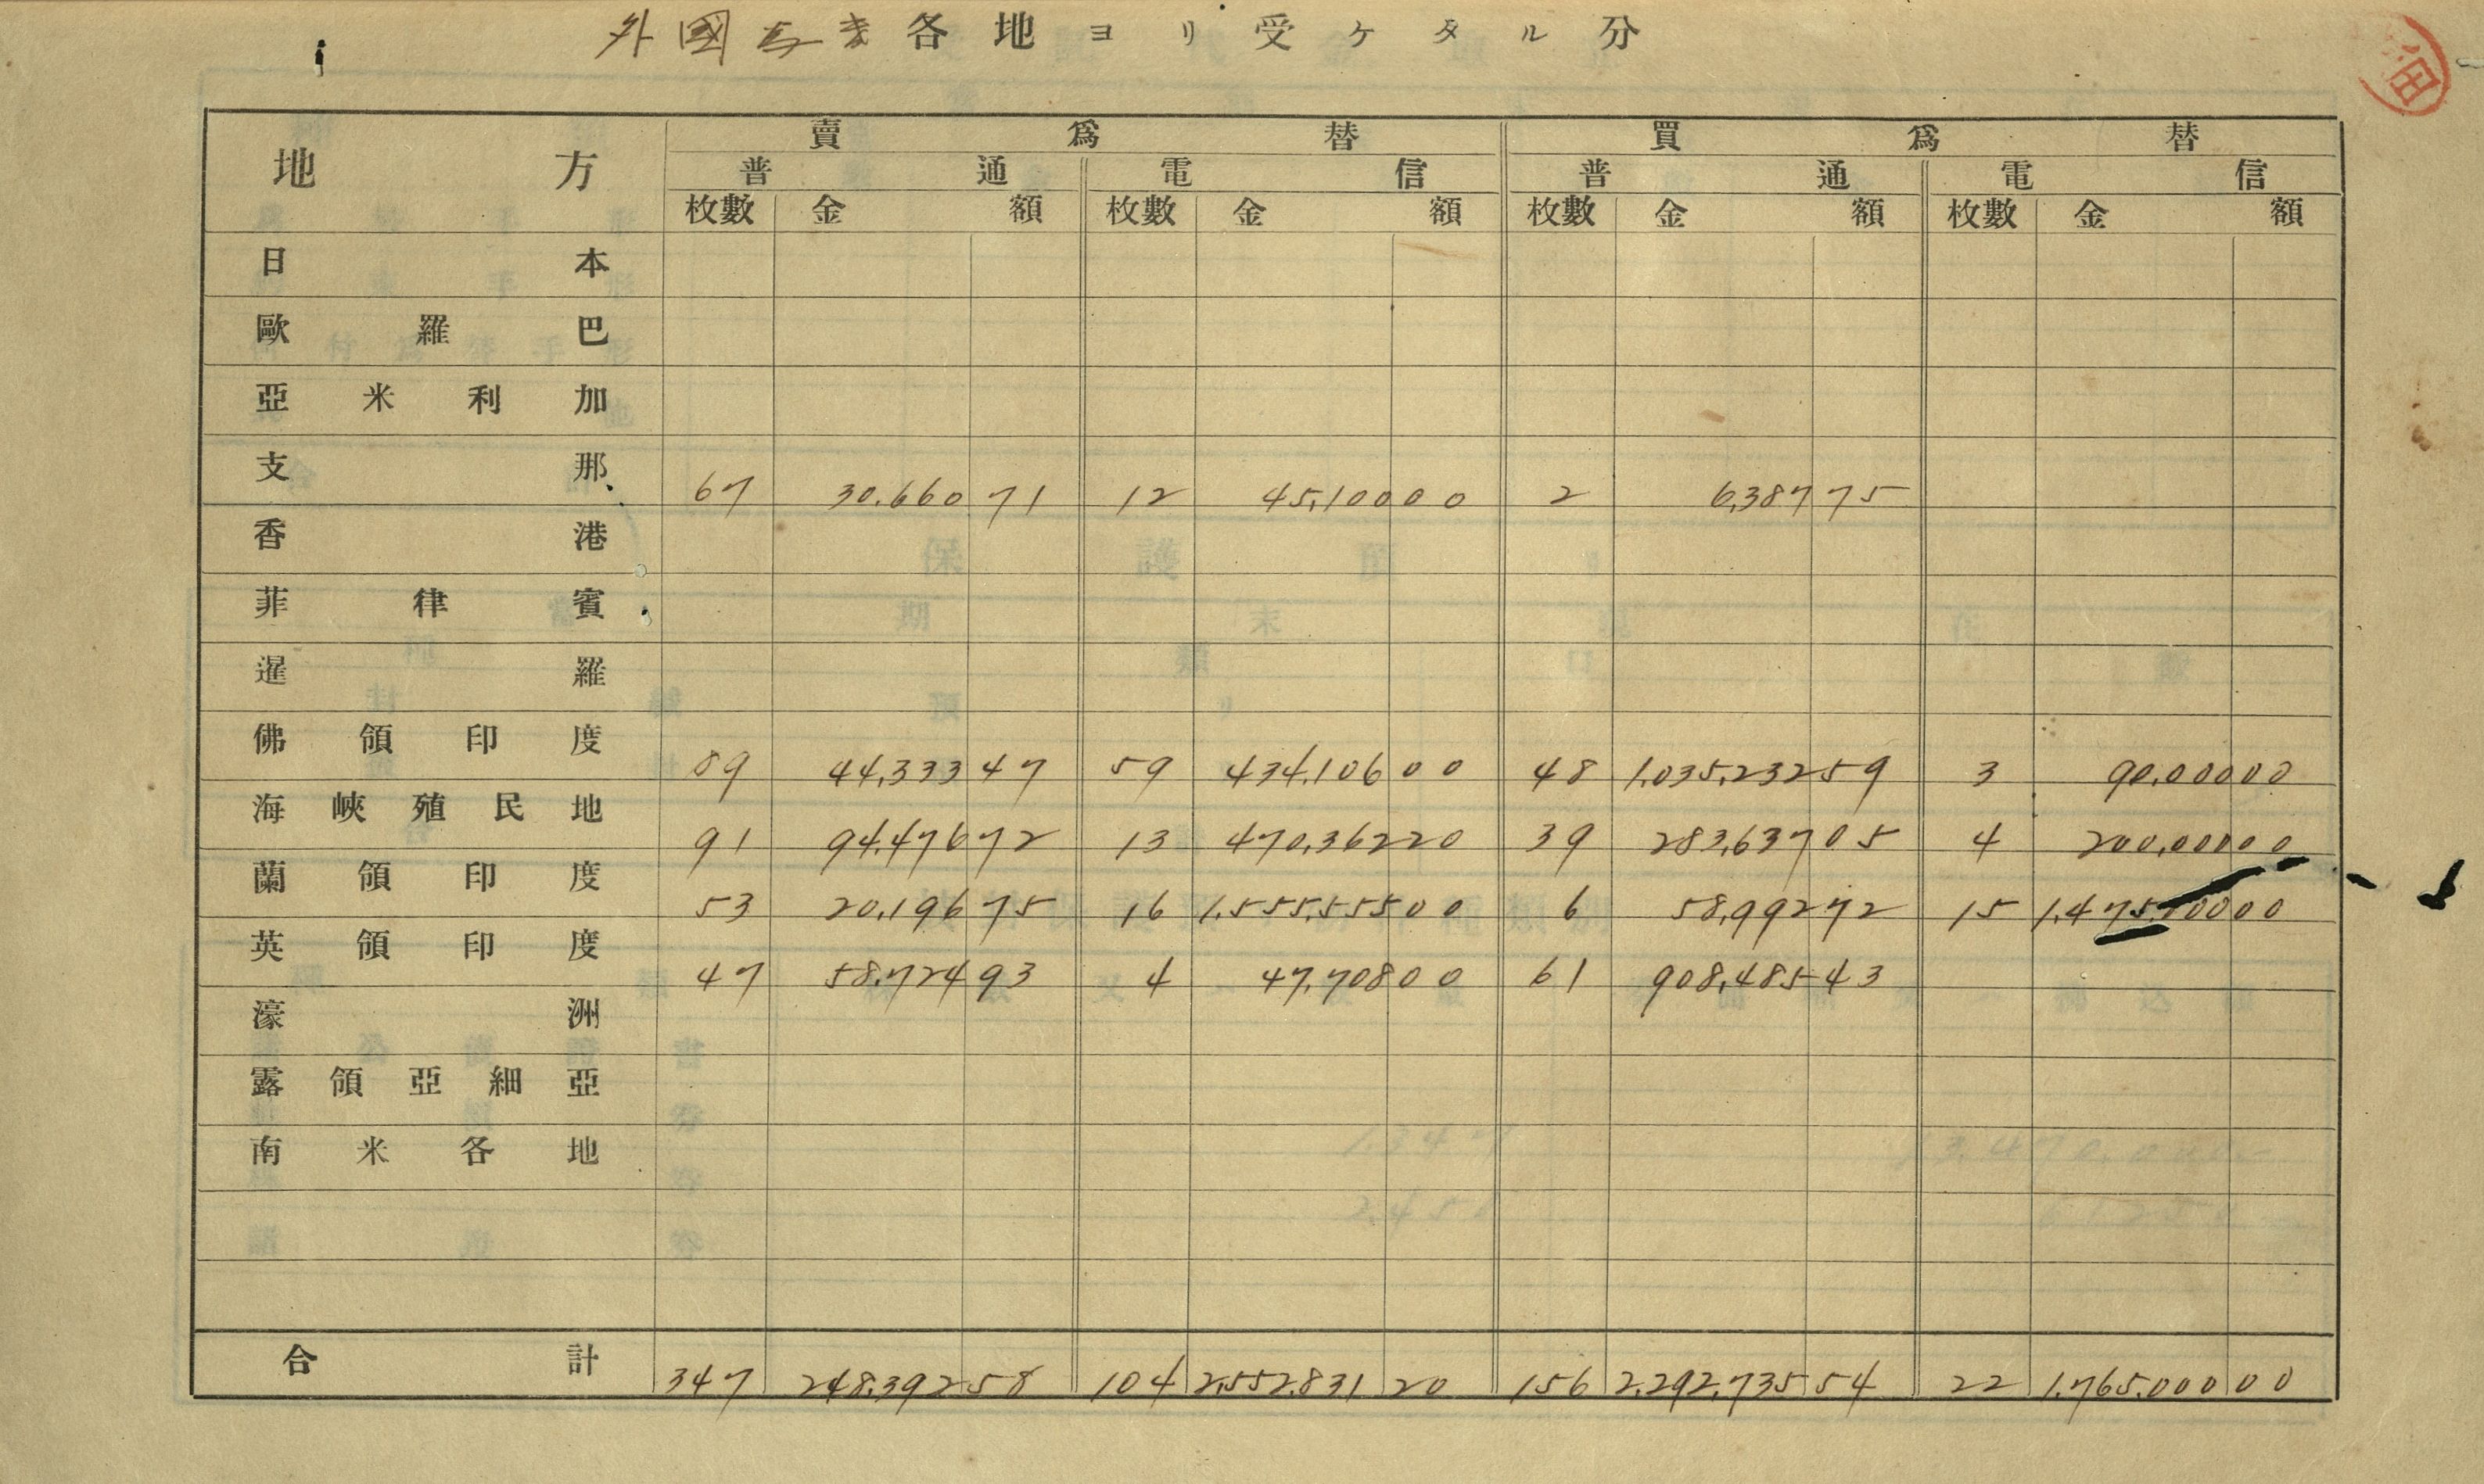 外國為替各地ヨリ受ケタル分
地方 賣爲替 買爲替
普通 電信 普通 電信
枚數 金額 枚數 金額 枚數 金額 枚數 金額
日本
歐羅巴
亞米利加
支那 67 30,660 71 12 45,100 00 2 6,387 75
香港
菲律賓
暹羅
佛領印度 89 44,333 47 59 434,106 00 48 1,035,232 59 3 90,000 00
海峽殖民地 91 94,476 72 13 470,362 20 39 283,637 05 4 200,000 00
蘭領印度 53 20,196 75 16 1,555,555 00 6 58,992 72 15 1,475,000 00
英領印度 47 58,724 93 4 47,708 00 61 908,485 43
濠洲
露領亞細亞
南米各地
合計 347 248,392 58 104 2,552,831 20 156 2,292,735 54 22 1,765,000 00